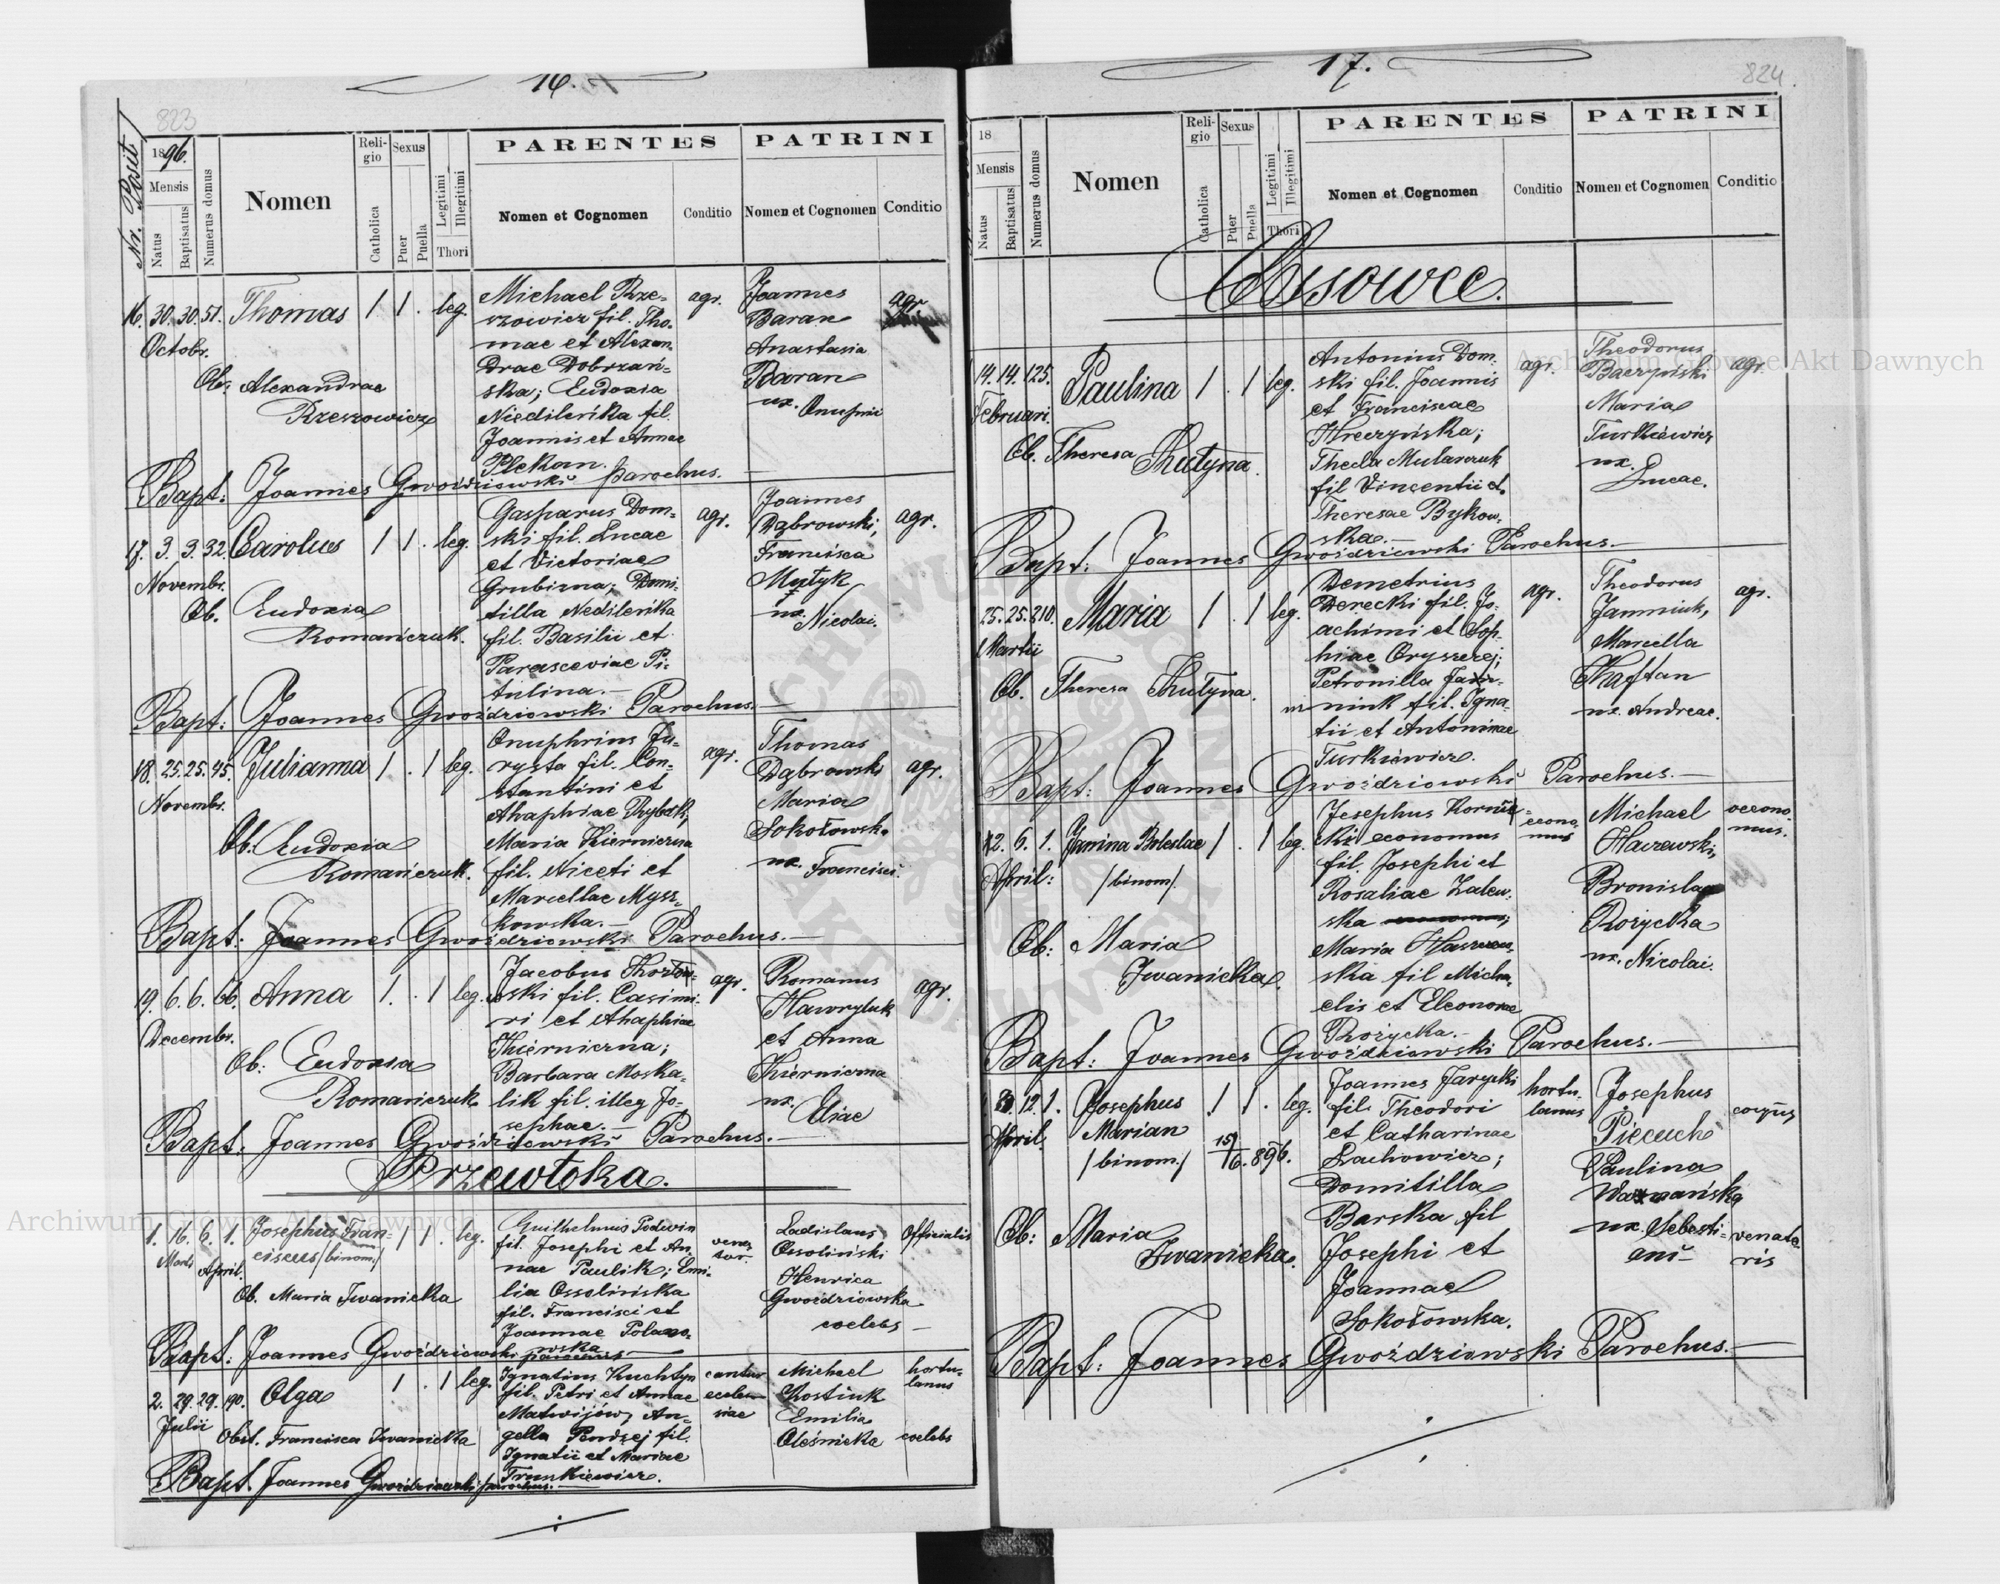 16.
823
Nr. Posit
1896.
Mensis
Natus
Baptisatus
Numerus domus
Nomen
Religio
Catholica
Sexus
Puer
Puella
Legitimi
Illegitimi
Thori
PARENTES
Nomen et Cognomen
Conditio
PATRINI
Nomen et Cognomen
Conditio
16. 30. 30. 51. Thomas 1 1 . leg.
Octobr.
Ob. Alexandrae
Rzeszowicz
Michael Rze-
szowicz fil. Tho-
mae et Alexan-
drae Dobrzań-
ska; Eudoxia
Niedileńka fil.
Joannis et Annae
Plekan.
agr.
Joannes
Baran
Anastasia
Baran
ux. Onuprii
agr.
Bapt: Joannes Gwoździowski parochus.
17. 3. 3. 32. Carolus 1 1 . leg.
Novembr.
Ob. Eudoxia
Romańczuk.
Gasparus Dom-
ski fil. Lucae
et Victoriae
Grubizna; Domi-
tilla Nedileńka
fil. Basilii et
Parasceviae Pi-
tulina.
agr.
Joannes
Dąbrowski;
Francisca
ux.
Nicolai.
agr.
Bapt: Joannes Gwoździowski Parochus.
18. 25. 25. 45. Julianna 1 . 1 leg.
Novembr.
Ob. Eudoxia
Romańczuk.
Onuphrius Ju-
rysta fil. Con-
stantini et
Ahaphiae
Maria Kierniczna
fil. Niceti et
Marcellae Mysz-
kowska.
agr.
Thomas
Dąbrowski
Maria
Sokołowska
ux. Francisci.
agr.
Bapt: Joannes Gwoździowski Parochus.
19. 6. 6. 66. Anna 1. . 1 leg.
Decembr.
Ob: Eudoxia
Romańczuk
Jacobus
fil. Casimi-
ri et Ahaphiae
Kierniczna;
Barbara Moska-
lik fil. illeg Jo-
sephae.
agr.
Romanus
Hawryluk
et Anna
Kierniczna
ux. Eliae
agr.
Bapt: Joannes Gwoździowski Parochus.
Przewłoka.
1. 16. 6. 1. Josephus Fran-
ciscus /binom./ 1 1 . leg.
Martii April.
Ob. Maria Iwanicka
Guilhelmus Podwin
fil. Josephi et An-
nae Paulik; Emi-
lia Ossolińska
fil. Francisci et
Joannae Polano-
wska
vena-
tor.
Ladislaus
Ossoliński
Henrica
Gwoździowska
coelebs
Officialis
Bapt: Joannes Gwoździowski parochus
2. 29. 29. 190. Olga 1 . 1 leg.
Julii
Obst. Francisca Iwanicka
Ignatius Kuchtyn
fil. Petri et Annae
Matwijów, An-
gella Pendzej fil.
Ignatii et Mariae
Trunkiewicz.
cantor
eccle-
siae
Michael
Kostiuk
Emilia
Oleśnicka
hortu-
lanus
coelebs
Bapt. Joannes Gwoździowski parochus.
17.
824.
18
Mensis
Natus
Baptisatus
Numerus domus
Nomen
Religio
Catholica
Sexus
Puer
Puella
Legitimi
Illegitimi
Thori
PARENTES
Nomen et Cognomen
Conditio
PATRINI
Nomen et Cognomen
Conditio
Ossowce.
14. 14. 125. Paulina 1 . 1 leg.
Februari.
Ob. Theresa Hutyna.
Antonius Dom-
ski fil. Joannis
et Franciscae
Hreczyńska;
Thecla Mularczuk
fil Vincentii et
Theresae Bykow-
ska.
agr.
Theodorus
Baczyński
Maria
Turkiewicz
ux.
Lucae.
agr.
Bapt: Joannes Gwoździowski Parochus.
25. 25. 210. Maria 1 . 1 leg.
Martii
Ob. Theresa Hutyna.
Demetrius
Derecki fil. Jo-
achimi et Sop-
hiae Oryszczej;
Petronilla
fil. Igna-
tii et Antoninae
Turkiewicz.
agr.
Theodorus
Jamniuk,
Marcella
Kaftan
ux. Andreae.
agr.
Bapt: Joannes Gwoździowski Parochus.
12. 6. 1. Janina Boleslae 1 . 1 leg.
April: /binom/.
Ob: Maria
Iwanicka.
Josephus
economus
fil. Josephi et
Rosaliae Zalew-
ska
Maria
ska fil Micha-
elis et Eleonorae
Rożycka.
econo-
mus
Michael
Bronislaa
Rożycka
ux. Nicolai.
oecono-
mus.
Bapt: Joannes Gwoździowski Parochus.
12. 1. Josephus 1 1 . leg.
April. Marian
/binom./ 15/6. 896.
Ob: Maria
Iwanicka.
Joannes Jarycki
fil. Theodori
et Catharinae
Lachowicz;
Domitilla
Barska fil
Josephi et
Joannae
Sokołowska.
hortu-
lanus
Josephus
Piecuch
Paulina
ux. Sebasti-
ani
venato-
ris
Bapt: Joannes Gwoździowski Parochus.
Archiwum Główne Akt Dawnych
Archiwum Główne Akt Dawnych